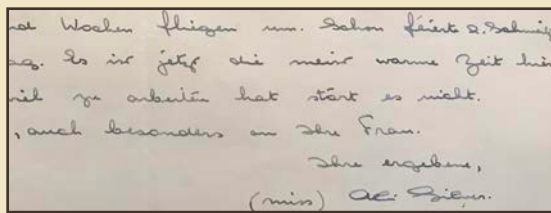 nd Wochen fliegen um. Schon feierte R. Schweig
ag. Es ist jetzt die meist warme Zeit hie
viel zu arbeiten hat stört es nicht.
, auch besonders an Ihre Frau.
Ihre ergebene,
(miss)